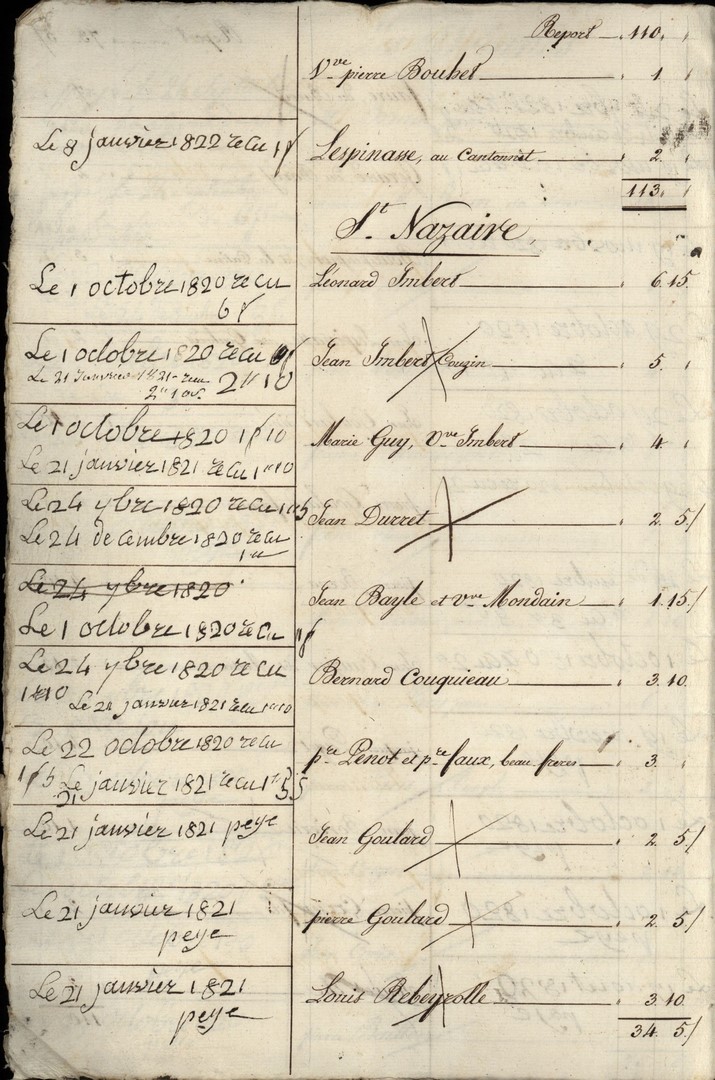 Report 110.
Vve pierre Boubet 1.
Le 8 janvier 1822 recu 1f
Lespinasse, au Cantonnet 2.
113.
St. Nazaire
Le 1 octobre 1820 recu
6f
Léonard Imbert 6. 15.
Le 1 octobre 1820 recu
Le 21 janvier 1821 recu 2" 10
Jean Imbert Couzin 5.
Le 1 octobre 1820 1f 10
Le 21 janvier 1821 recu 1" 10
Marie Guy, Vve Imbert 4.
Le 24 ybre 1820 recu 1" 5
Le 24 decembre 1820 recu
1"
Jean Durret 2. 5/
Le 24 ybre 1820
Le 1 octobre 1820 recu 1f
Jean Bayle et Vve Mondain 1. 15/
Le 24 ybre 1820 recu
1" 10 Le 21 janvier 1821 recu 1" 10
Bernard Couquieau 3. 10.
Le 22 octobre 1820 recu
1f 5 Le 21 janvier 1821 recu 1"
pre Penot et pre faux, beau-freres 3.
Le 21 janvier 1821 peye
Jean Goulard 2. 5/
Le 21 janvier 1821
peye
pierre Goulard 2. 5/
Le 21 janvier 1821
peye
Louis Rebeyrolle 3. 10.
34. 5/